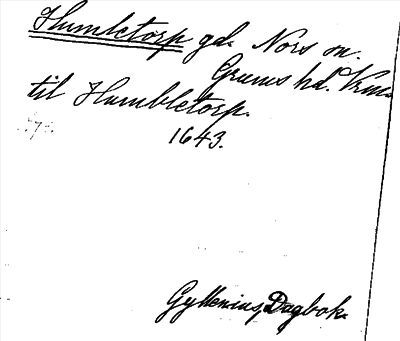 Humletorp gd. Nors sn.
Grums hd. Vrml.
til Humbletorp.
1643.
Gyllenius, Dagbok.